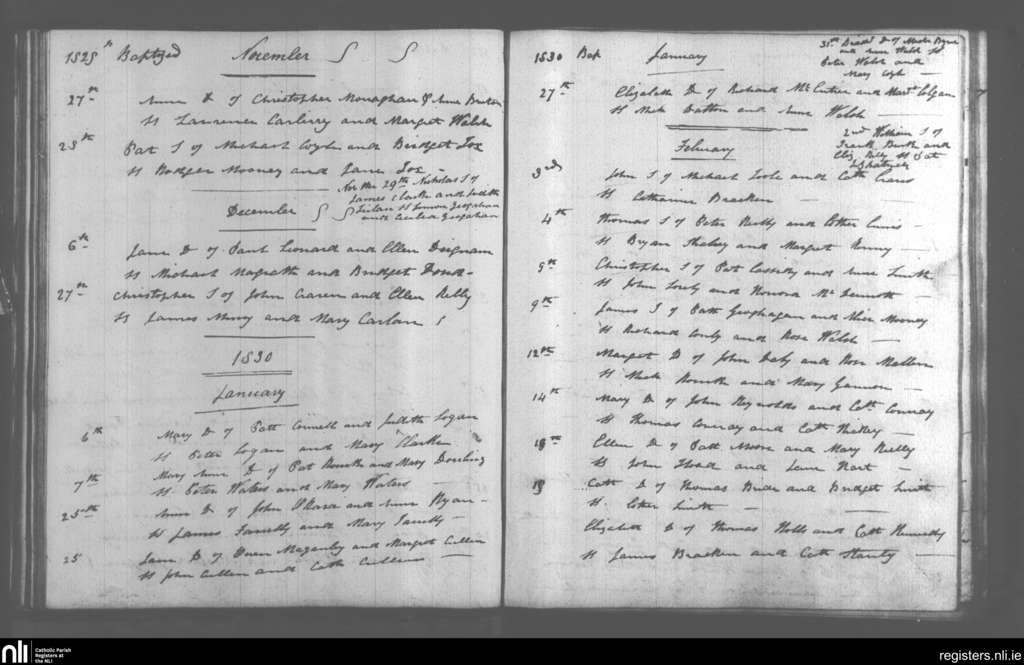 1829 Baptized November
27th Anne D of Christopher Monaghan & Anne
St Laurence Carberry and Margret Walsh
28th Pat S of Michael Coyle and Bridget Fox
St Rodger Mooney and Jane Fox
Nov the 29th Nicholas S of
James Clarke and Judith
St Simon Geogahan
and Cecelia Geogahan
December
6th Jane D of Paul Leonard and Ellen Deignan
St Michael Magrath and Bridget
27th Christopher S of John Craven and Ellen Reilly
St James Murry and Mary Carlan
1830
January
6th Mary D of Patt Connell and Judith Logan
St Peter Logan and Mary Clarke
7th Mary Anne D of Pat Rourke and Mary Dowling
St Peter Waters and Mary Waters
25th Anne D of John O'Hara and Anne Ryan
St James Farrelly and Mary Farrelly
25 Jane D of Owen Magauley and Margret Cullen
St John Cullen and Cath Cullen
1830 Bap January
31st D of
and Anne Walsh St
Peter Walsh and
Mary
27th Elizabeth D of Richard McCartin and Margt Colgan
St Mick Dalton and Anne Walsh
February
2nd William S of
Frank Burke and
Eliz Reilly St Pat
Fitzpatrick
3rd John S of Michael Toole and Cath
St Catharine Bracken
4th Thomas S of Peter Reilly and Esther Ennis
St Bryan Shelvey and Margret
9th Christopher S of Pat Cassidy and Anne Smith
St John and Honora McDermott
9th James S of Patt Geoghagan and Alice Mooney
St Richard and Rose Walsh
12th Margret D of John Daly and Rose Mallon
St Mick Rourke and Mary Gannon
14th Mary D of John Reynolds and Cath Conway
St Thomas Conway and Cath Hickey
18th Ellen D of Patt Moore and Mary Reilly
St John and Jane Hart
19 Cath D of Thomas Bride and Bridget Smith
St Esther Smith
Elizabeth D of Thomas Holls and Cath Kennedy
St James Bracken and Cath
nli Catholic Parish
Registers at
the NLI
registers.nli.ie